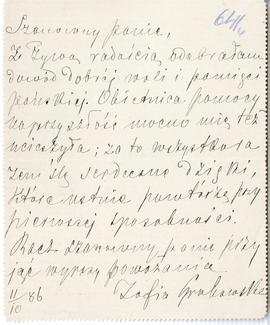 64/4
Szanowny panie,
Z żywą radością odebrałam
dowód dobrej woli i pamięci
pańskiej. Obietnica pomocy
na przyszłość mocno mię też
ucieszyła; za to wszystko
serdeczne dzięki,
które ustnie powtórzę przy
pierwszej sposobności.
Racz szanowny panie przy
jąć wyrazy poważania
11/10 86 Zofia Grabowska